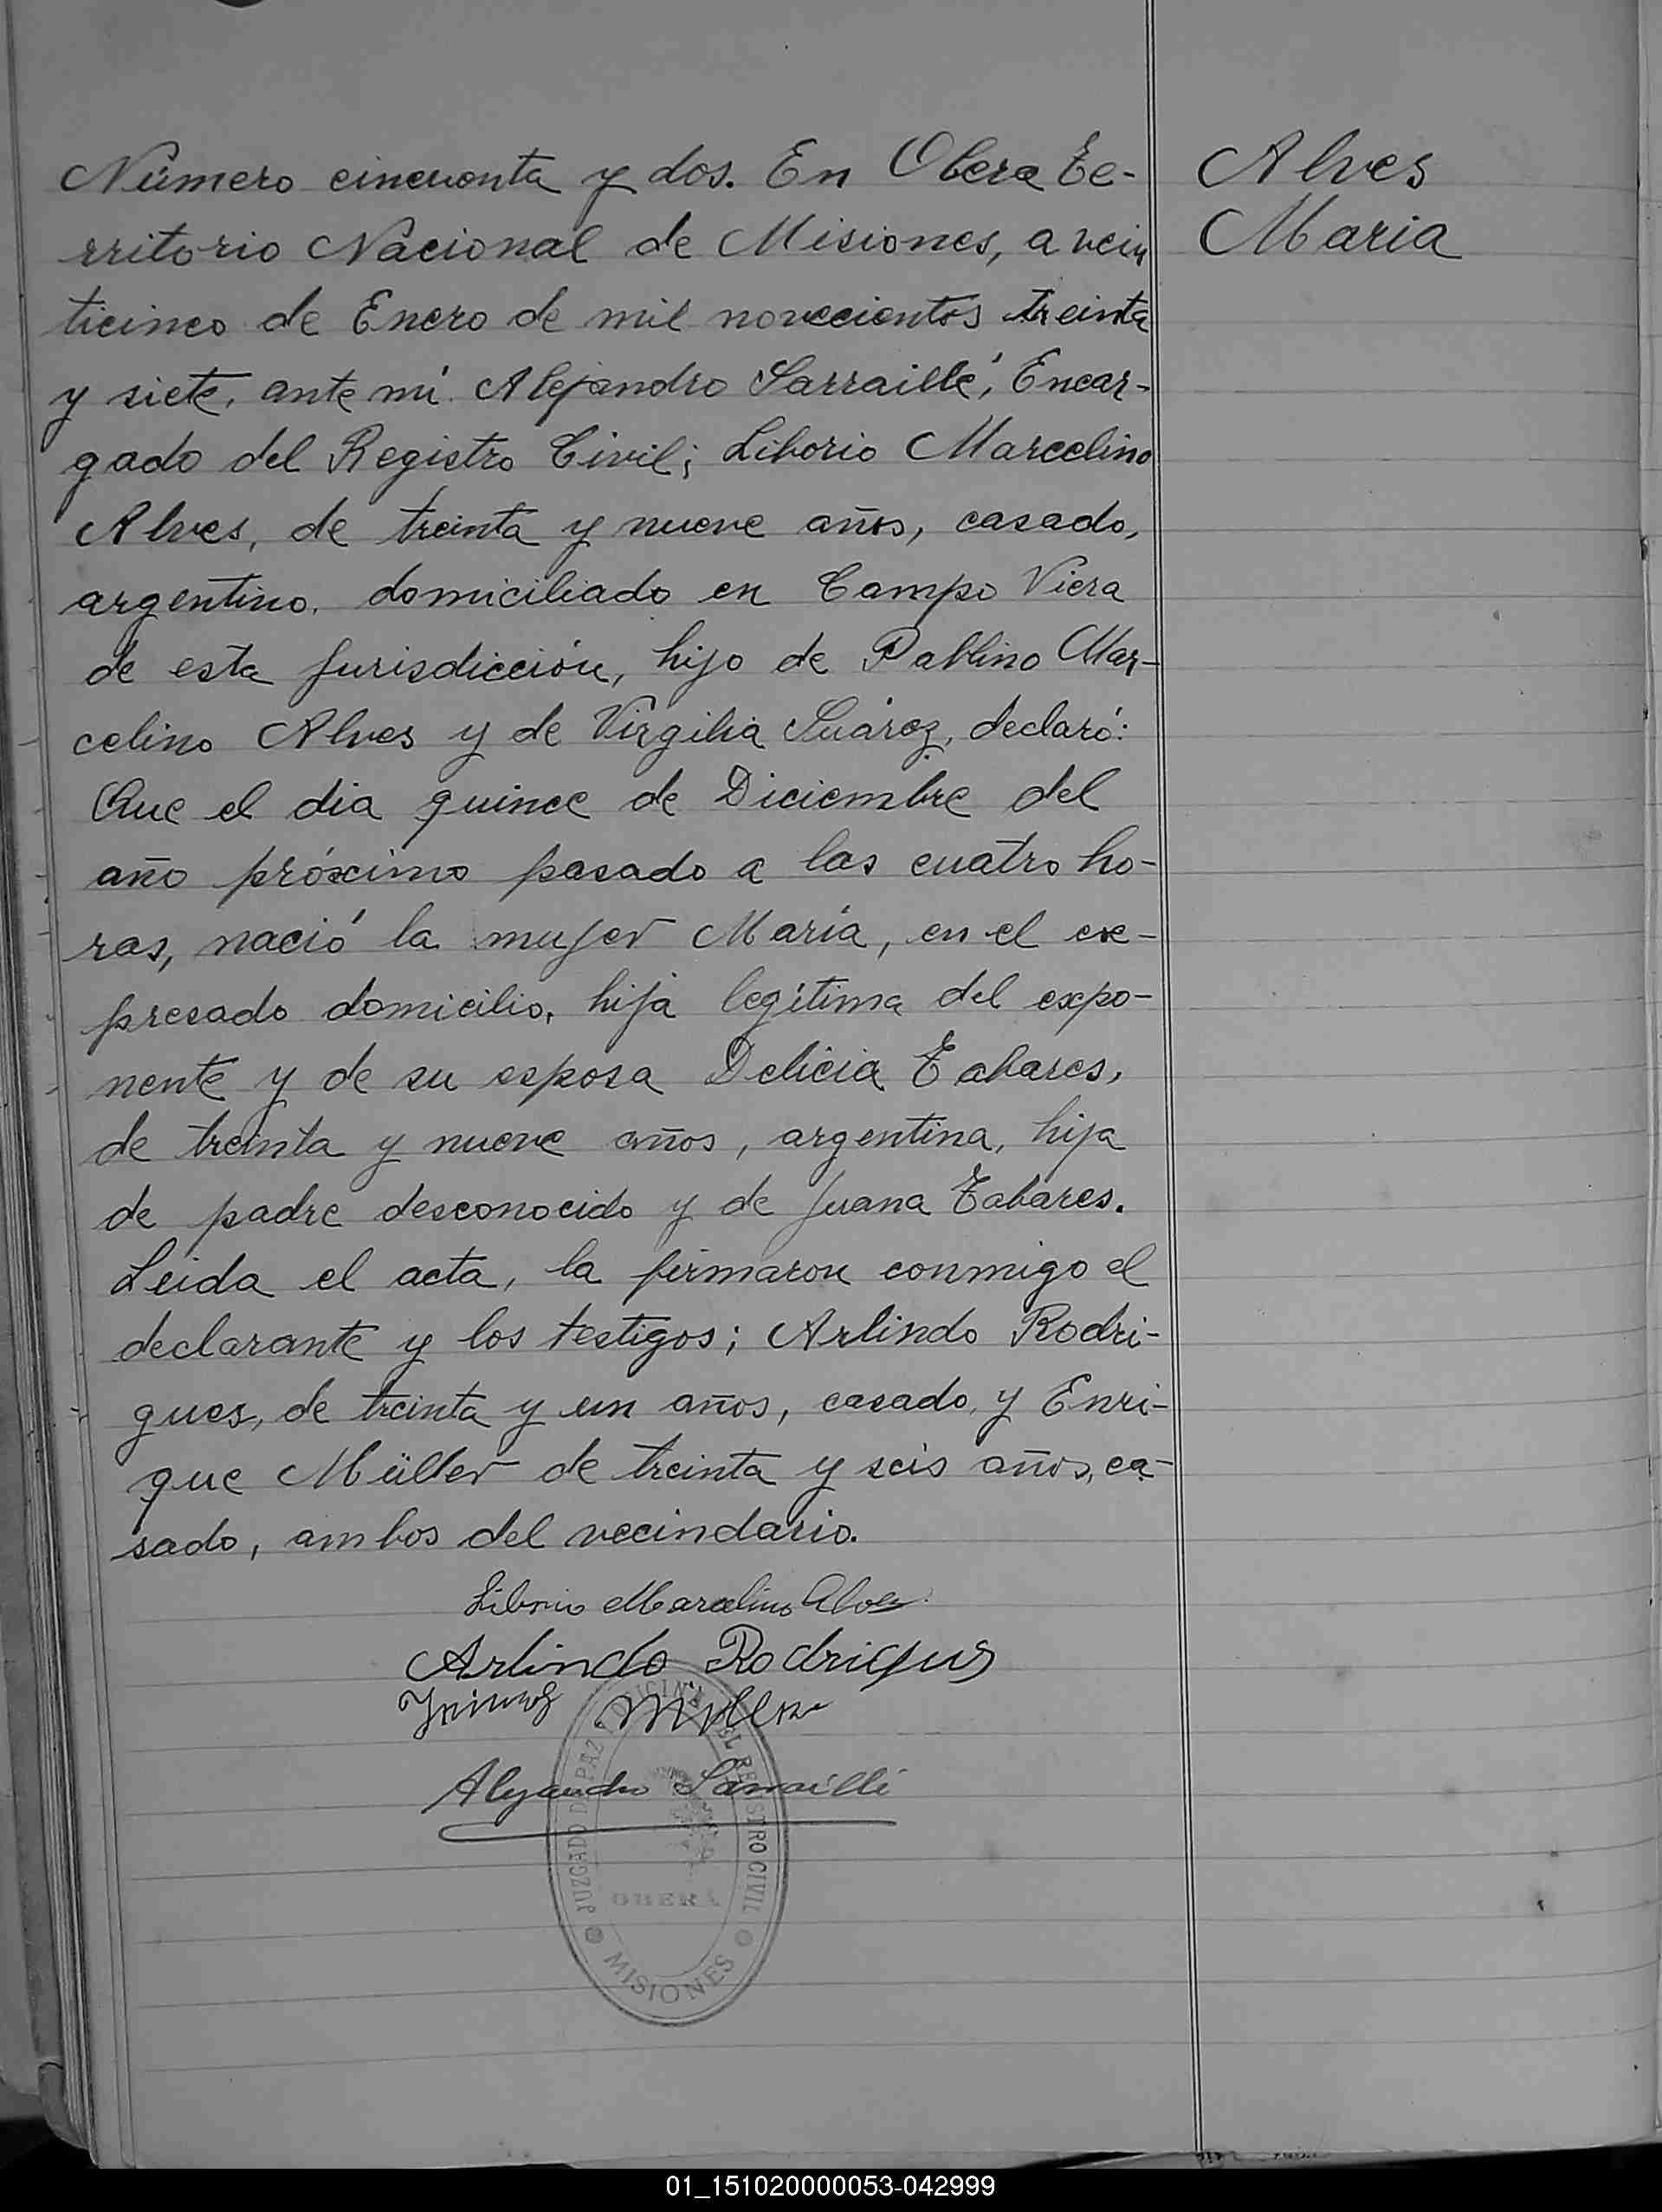 Número cincuenta y dos. En Obera Te-
rritorio Nacional de Misiones, a vein
ticinco de Enero de mil novecientos treinta
y siete, ante mí Alejandro Sarraillé, Encar-
gado del Registro Civil; Liborio Marcelino
Alves, de treinta y nueve años, casado,
argentino, domiciliado en Campo Viera
de esta jurisdicción, hijo de Pablino Mar-
celino Alves y de Virgilia Suárez, declaró:
Que el dia quince de Diciembre del
año próximo pasado a las cuatro ho-
ras, nació la mujer María, en el ex-
presado domicilio, hija legítima del expo-
nente y de su esposa Delicia Tabares,
de treinta y nueve años, argentina, hija
de padre desconocido y de Juana Tabares.
Leida el acta, la firmaron conmigo el
declarante y los testigos; Arlindo Rodri-
gues, de treinta y un años, casado, y Enri-
que Müller de treinta y seis años, ca-
sado, ambos del vecindario.
Alves
Maria
Liborio Marcelino Alves
Arlindo Rodrigues
Müller
Alejandro Sarraillé
JUZGADO DE PAZ Y OFICINA DEL REGISTRO CIVIL
OBERÁ
MISIONES
01_151020000053-042999